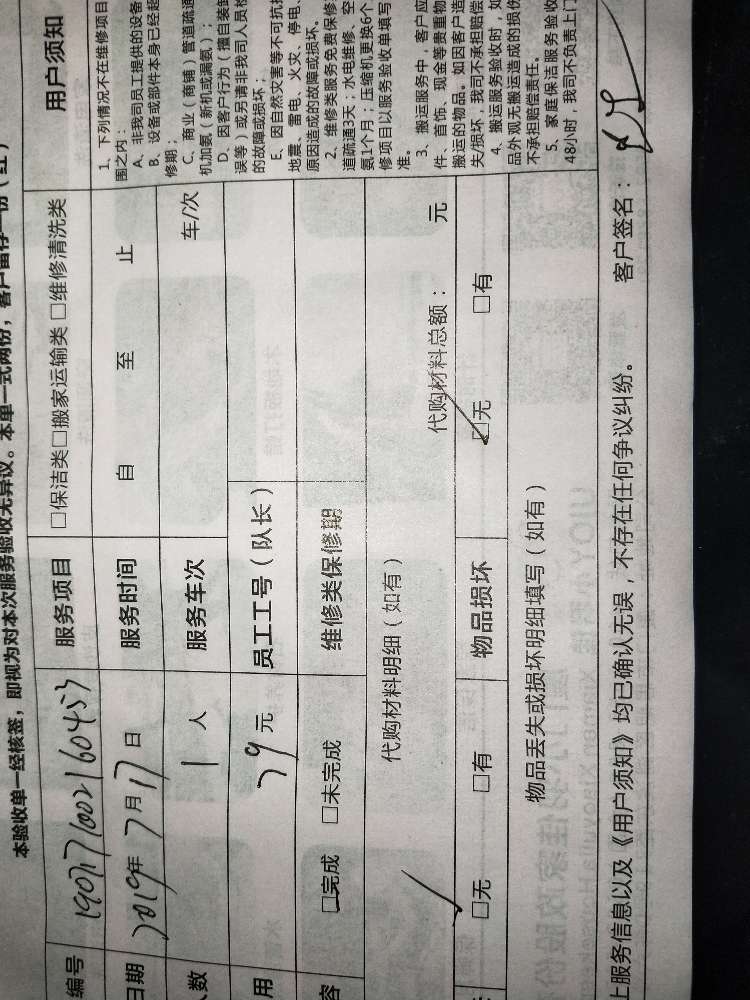 本验收单一经核签，即视为对本次服务验收无异议。本单一式两份，客户留存一份（红）
编号 190717002160453 服务项目 □保洁类□搬家运输类 □维修清洗类
日期 2019年7月17日 服务时间 自 至 止
人数 1人 服务车次 车/次
用 79元 员工工号（队长）
容 □完成 □未完成 维修类保修期
代购材料明细（如有） 代购材料总额： 元
□无 □有 物品损坏 □无 □有
物品丢失或损坏明细填写（如有）
用户须知
1、下列情况不在维修项目
围之内：
A、非我司员工提供的设备
B、设备或部件本身已经超
修期；
C、商业（商铺）管道疏通
机加氨（新机或漏氨）；
D、因客户行为（擅自装卸
误等）或另请非我司人员检
的故障或损坏；
E、因自然灾害等不可抗拒
地震、雷电、火灾、停电、
原因造成的故障或损坏。
2、维修类服务免费保修
道疏通3天；水电维修、空
氨1个月；压缩机更换6个
修项目以服务验收单填写
准。
3、搬运服务中，客户应
件、首饰、现金等贵重物
搬运的物品。如因客户造
失/损坏，我司不承担赔偿
4、搬运服务验收时，如
品外观无搬运造成的损伤
不承担赔偿责任。
5、家庭保洁服务验收
48小时，我司不负责上门
上服务信息以及《用户须知》均已确认无误，不存在任何争议纠纷。 客户签名：